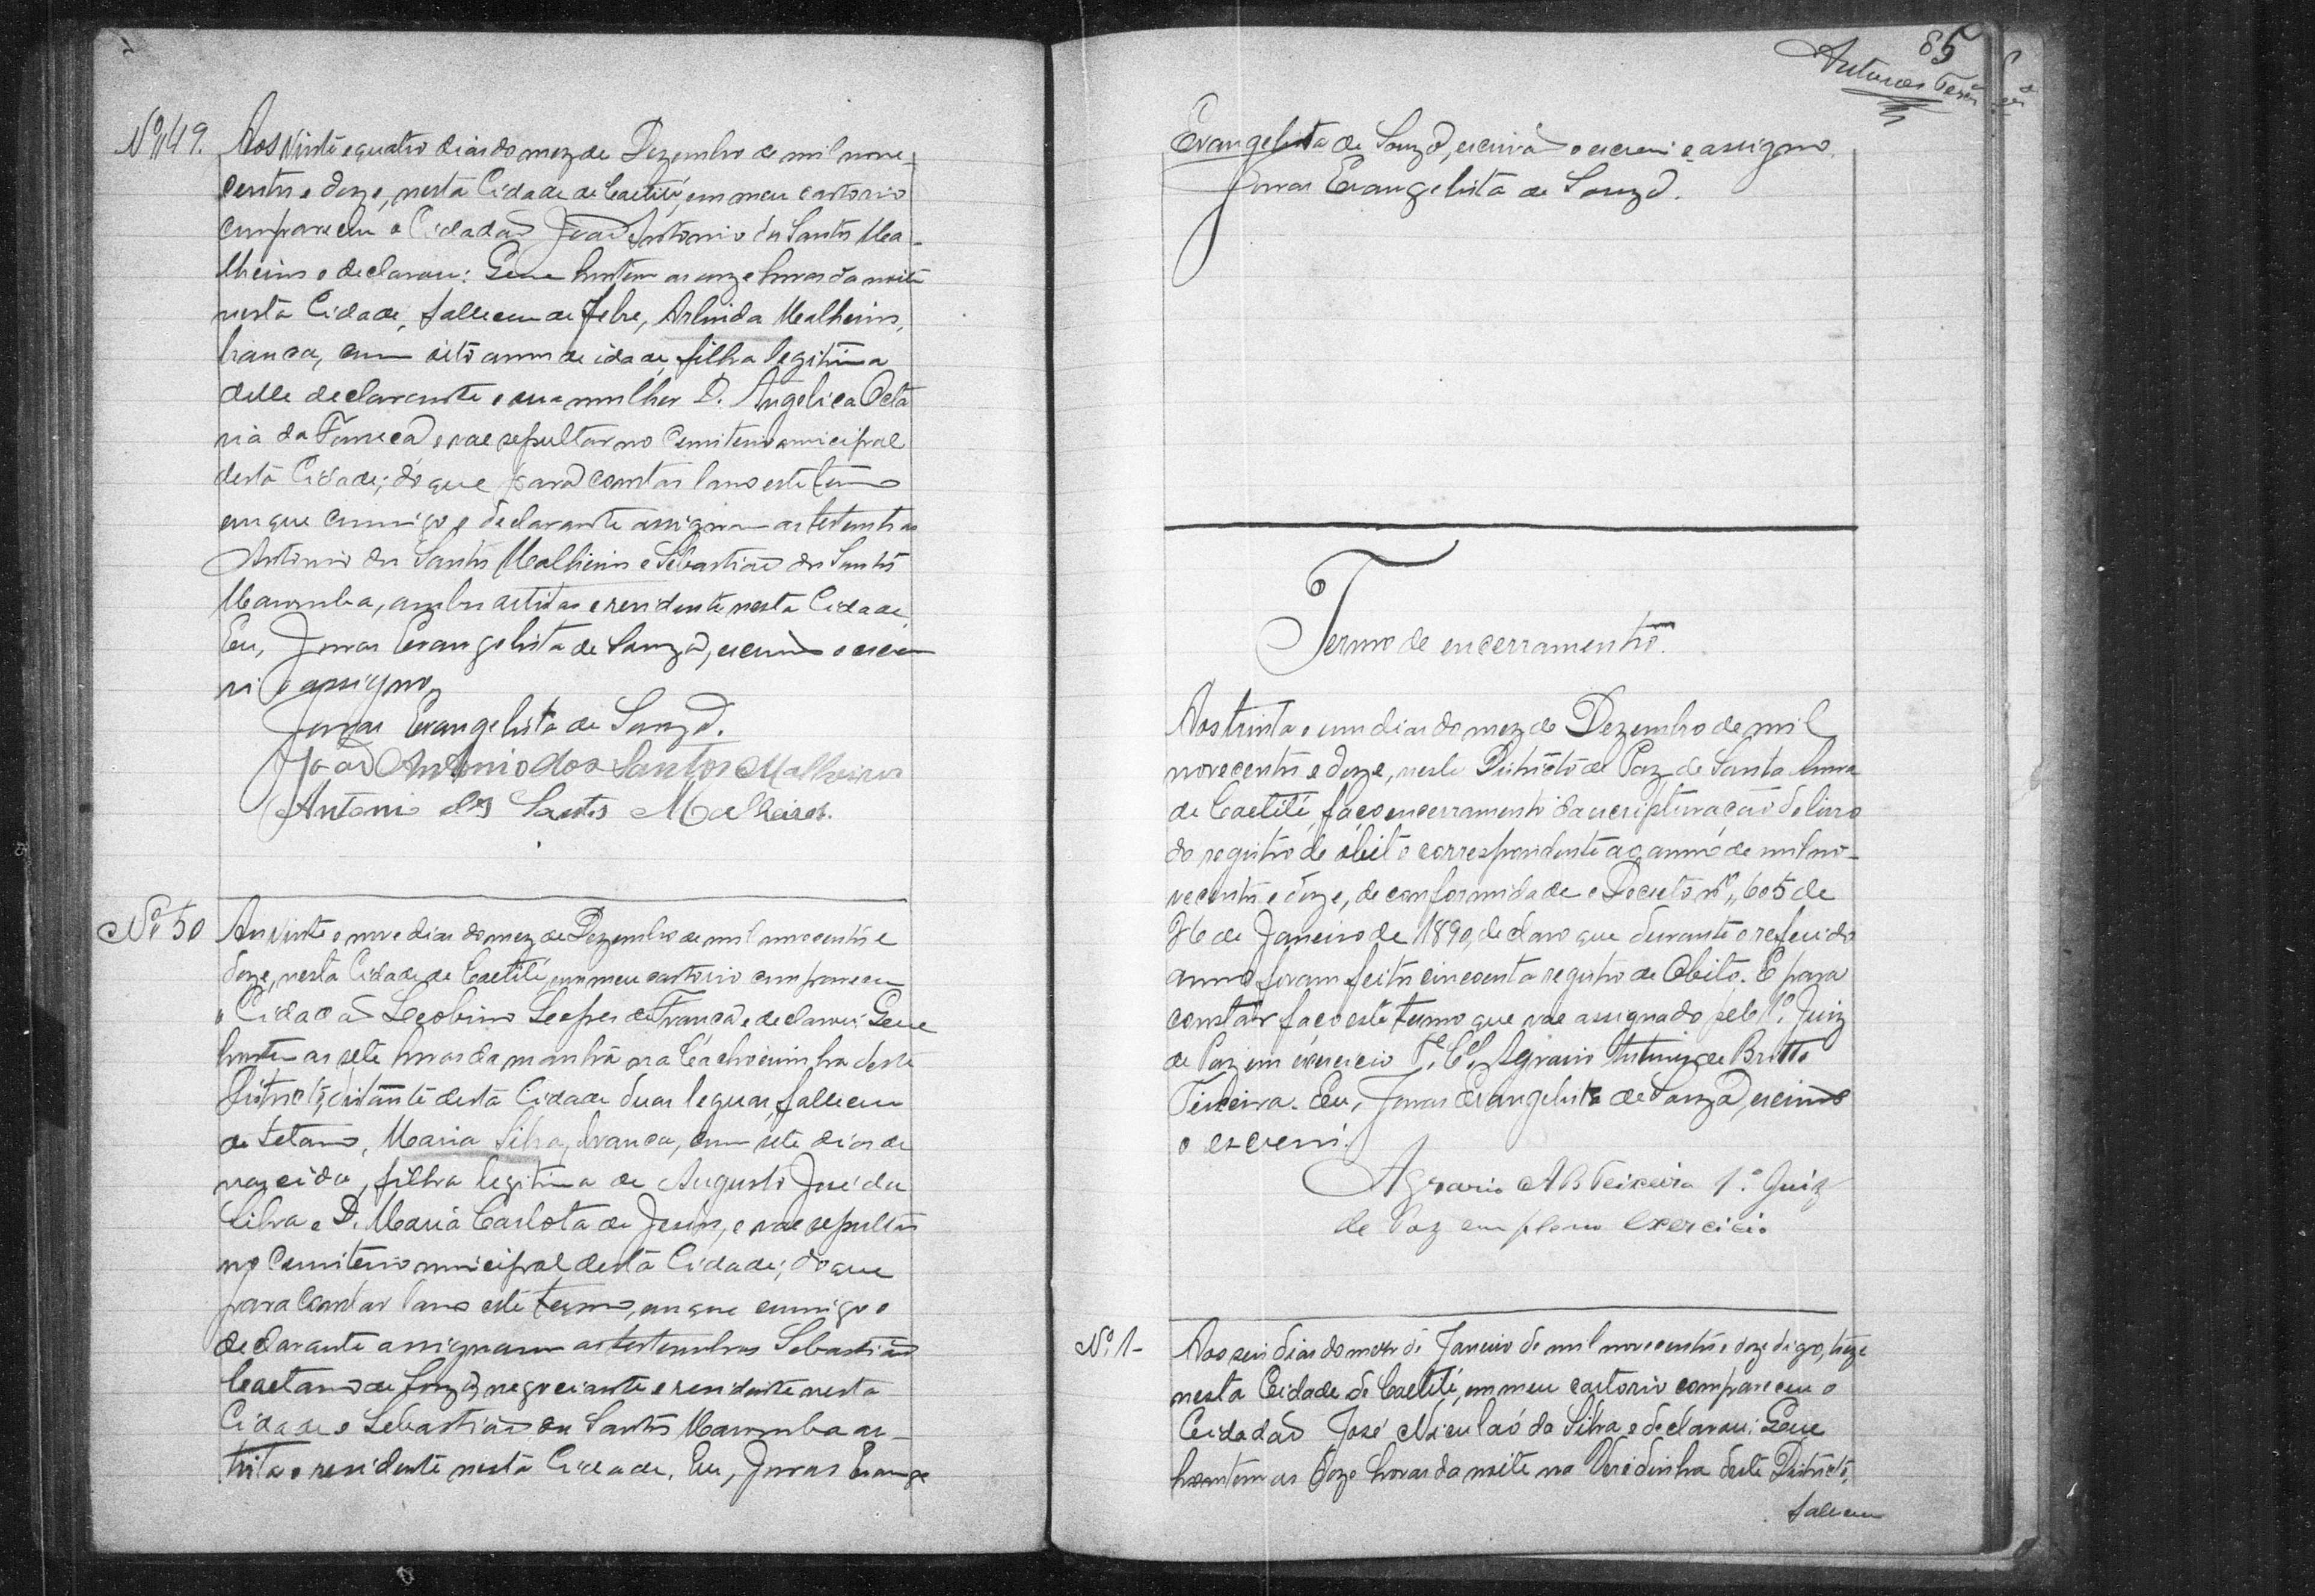 Nº 49. Aos vinte e quatro dias do mez de Dezembro de mil nove-
centos e doze, nesta Cidade de Caetité, em meu cartorio
compareceu o Cidadão João Antonio dos Santos Ma-
lheiros e declarou: Que hontem as onze horas da noite
nesta Cidade, falleceu de febre, Arlinda Malheiros,
branca, com oito annos de idade, filha legitima
delle declarante e sua mulher D. Angelica Octa
via da Fonseca, e vae sepultar no Cemiterio municipal
desta Cidade; do que para constar lavro este termo
em que commigo e declarante assignam as testemunhas
Antonio dos Santos Malheiros e Sebastião dos Santos
, ambos artistas e residente nesta Cidade.
Eu, Jonas Evangelista de Souza, escrivão o escre
vi e assigno.
Jonas Evangelista de Souza.
João Antonio dos Santos Malheiros
Antonio dos Santos Malheiros.
Nº 50 Aos vinte e nove dias do mez de Dezembro de mil novecentos e
doze, nesta Cidade de Caetité, em meu cartorio compareceu
o Cidadão de França e declarou: Que
hontem as sete horas da manhã na Cachoeirinha deste
Districto, distante desta Cidade duas leguas, falleceu
de tetano, Maria Silva, branca, com sete dias de
nascida, filha legitima de Augusto José da
Silva e D. Maria Carlota de Jesus, e vae sepultar
no Cemiterio municipal desta Cidade; do que
para constar lavro este termo, em que commigo o
declarante assignam as testemunhas Sebastião
Caetano de Souza, negociante e residente nesta
Cidade e Sebastião dos Santos ar-
tista e residente nesta Cidade. Eu, Jonas Evange
85
Antunes Teixª
Evangelista de Souza, escrivão o escrevi e assigno.
Jonas Evangelista de Souza.
Termo de encerramento.
Aos trinta e um dias do mez de Dezembro de mil
novecentos e doze, neste Districto de Paz de Santa Anna
de Caetité, faço encerramento da escripturação do livro
do registro de obito correspondente ao anno de mil no-
vecentos e doze, de conformidade o Decreto nº 605 de
26 de Janeiro de 1890, declaro que durante o referido
anno foram feitos cincoenta registro de Obito. E para
constar faço este termo que vae assignado pelo 1º Juiz
de Paz em exercicio Te. Cel. Agrario Antunes de Britto
Teixeira. Eu, Jonas Evangelista de Souza, escrivão
o escrevi.
Agrario A B Teixeira 1.º Juiz
de Paz em pleno exercicio
Nº 1- Aos seis dias do mez de Janeiro de mil novecentos e doze digo, treze
nesta Cidade de Caetité, em meu cartorio compareceu o
Cidadão José Niculaó da Silva e declarou: Que
hontem as doze horas da noite na Veredinha deste Districto,
falleceu